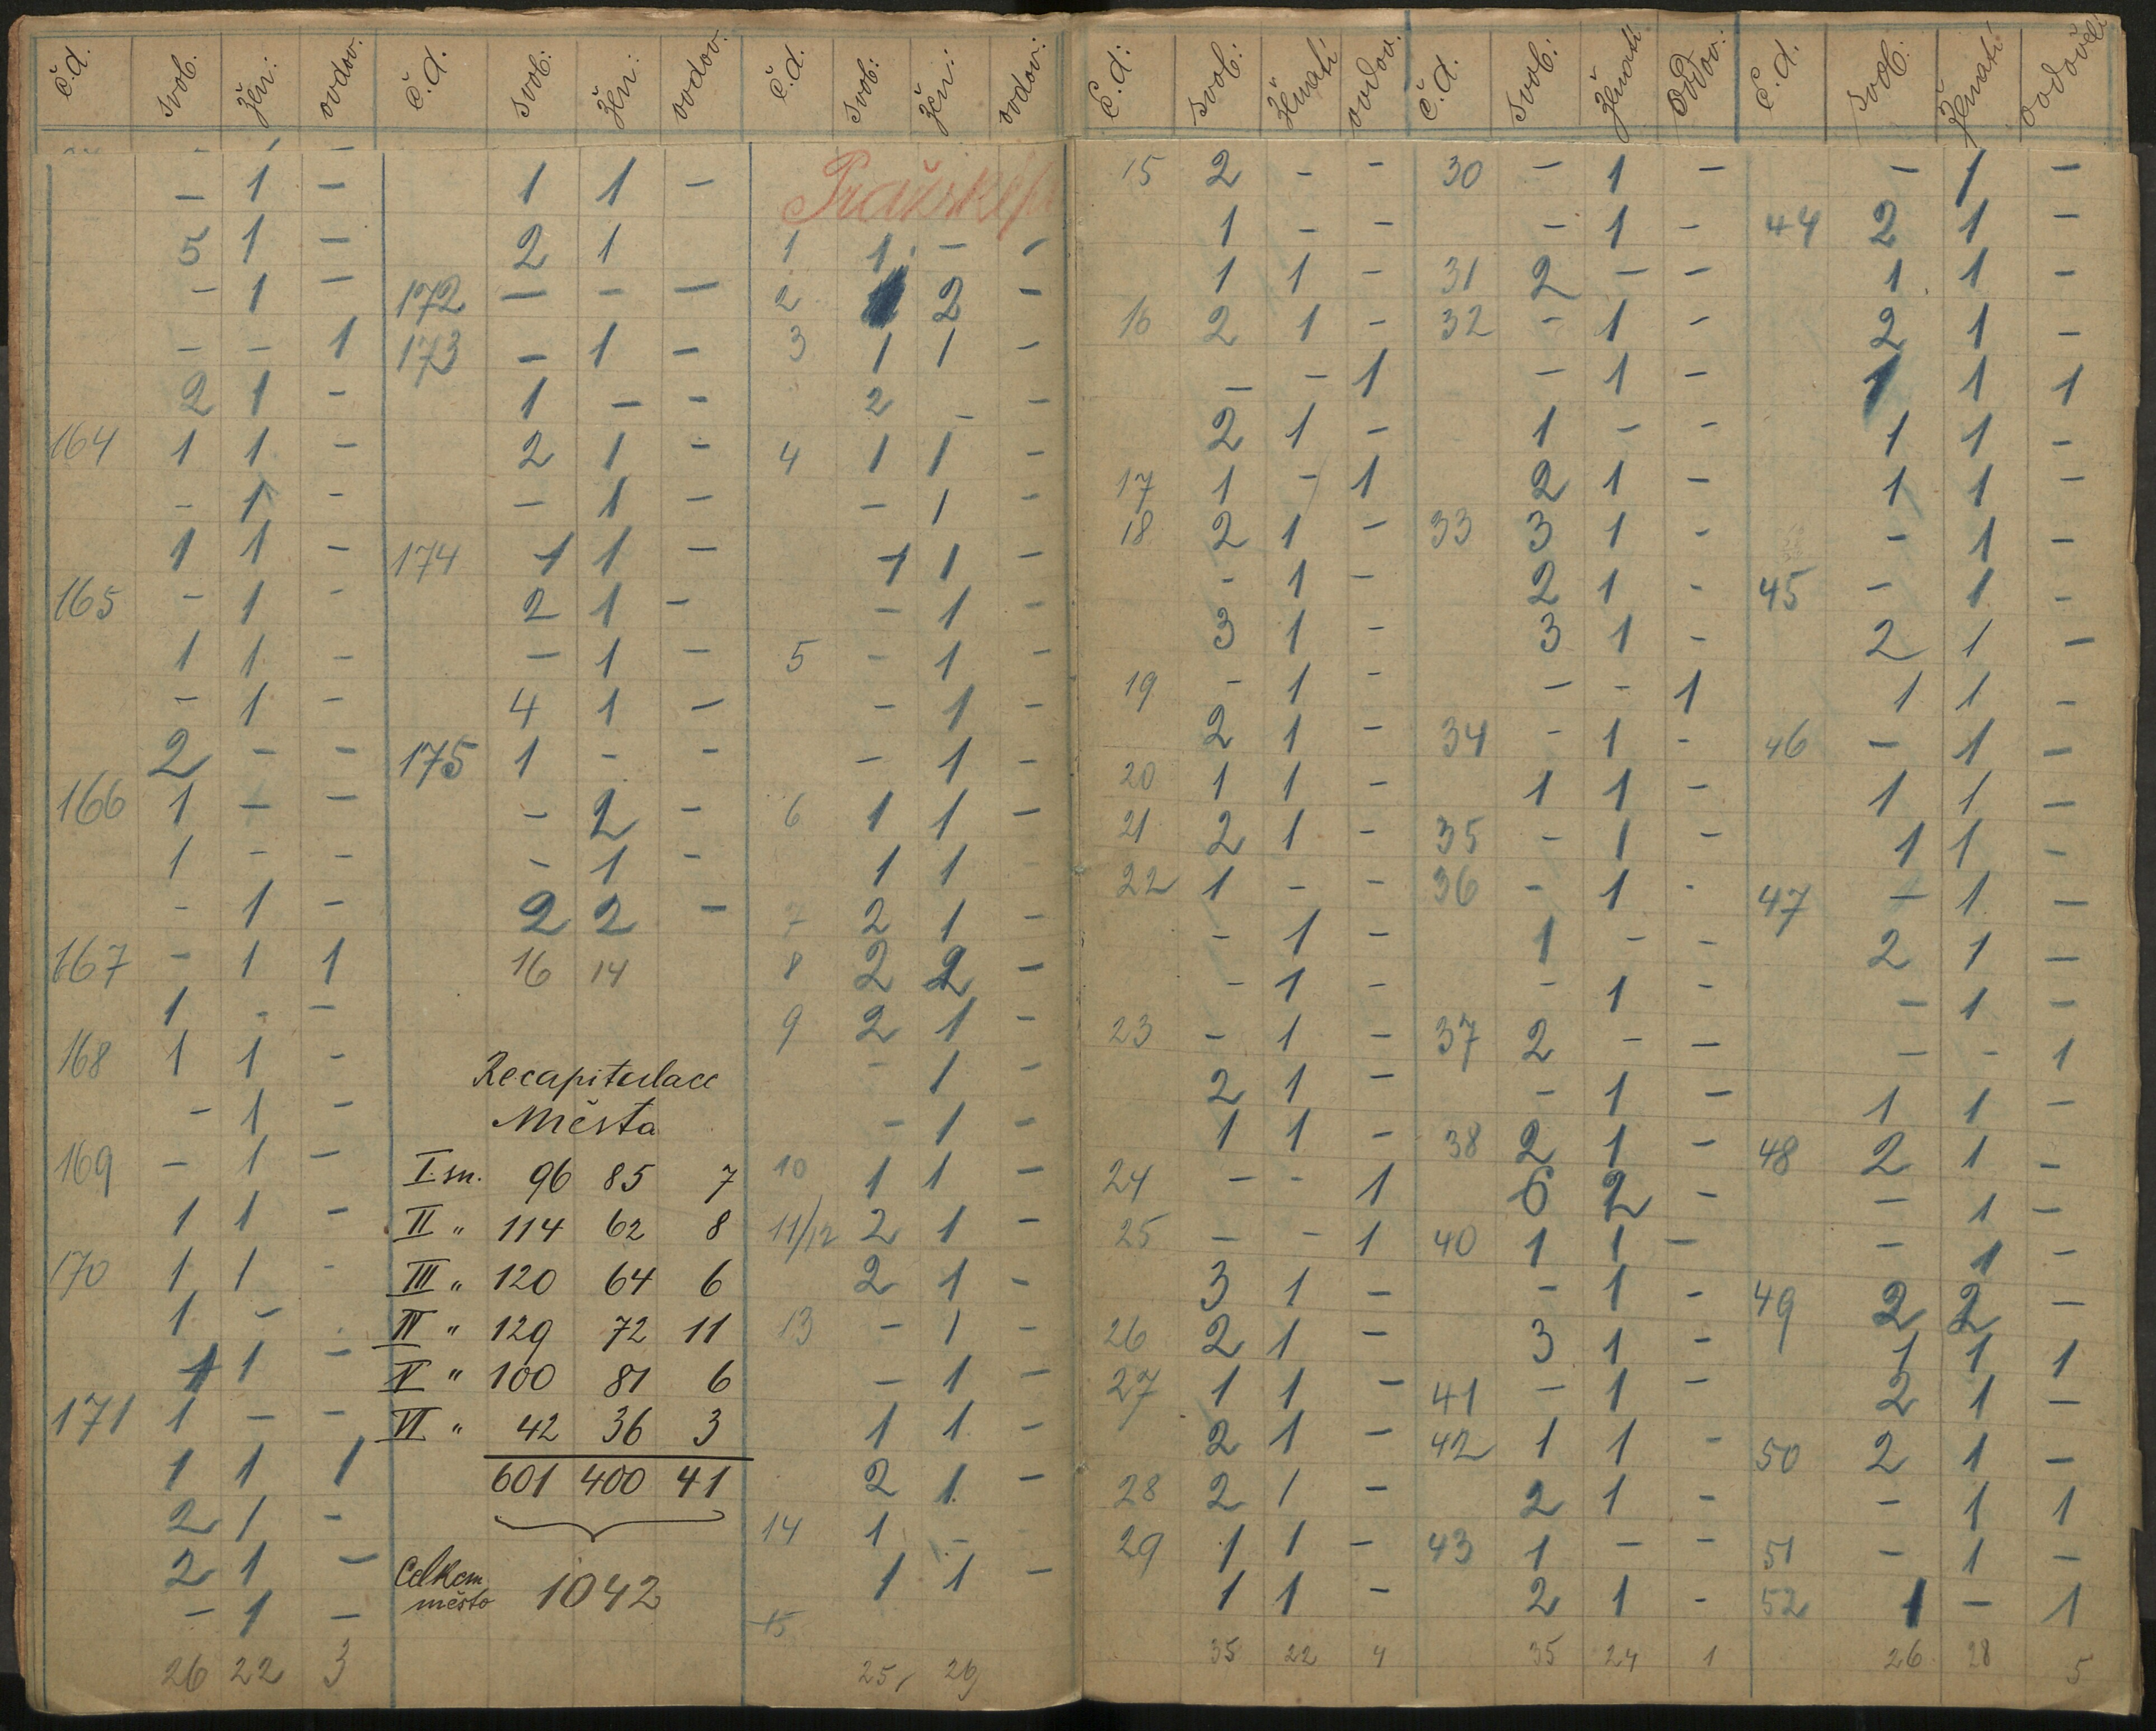 č.d. svob. žen: ovdov. č.d. svob: žen: ovdov. č.d. svob: žen: ovdov: č.d: svob: ženatí ovdov. č.d. svob: ženatí ovdov: č.d. svob: ženatí
– 1 –
5 1 –
– 1 –
– – 1
2 1 –
164 1 1 –
– 1 –
1 1 –
165 – 1 –
1 1 –
– 1 –
2 – –
166 1 – –
1 – –
– 1 –
167 – 1 1
1 – –
168 1 1 –
– 1 –
169 – 1 –
1 1 –
170 1 1 –
1 –
1 1 –
171 1 – –
1 1 1
2 1 –
2 1 –
– 1 –
26 22 3
1 1 –
2 1
172 – – –
173 – 1 –
1 – –
2 1 –
– 1 –
174 1 1 –
2 1 –
– 1 –
4 1 –
175 1 – –
– 2 –
– 1 –
2 2 –
16 14
Recapitulace
Města
I. sn. 96 85 7
II " 114 62 8
III " 120 64 6
IV " 129 72 11
V " 100 81 6
VI " 42 36 3
601 400 41
Celkem
město 1042
1 1 – –
2 1 2 –
3 1 1 –
2 – –
4 1 1 –
– 1 –
1 1 –
– 1 –
5 – 1 –
– 1 –
– 1 –
6 1 1 –
1 1
7 2 1 –
8 2 2 –
9 2 1 –
– 1 –
– 1 –
10 1 1 –
11/12 2 1 –
2 1 –
13 – 1 –
– 1 –
1 1 –
2 1 –
14 1 –
1 1 –
15
25 26
15 2 – –
1 – –
1 1 –
16 2 1 –
– – 1
2 1 –
17 1 – 1
18 2 1 –
– 1 –
3 1 –
19 – 1 –
2 1 –
20 1 1 –
21 2 1 –
22 1 – –
– 1 –
– 1 –
23 – 1 –
2 1 –
1 1 –
24 – – 1
25 – – 1
3 1 –
26 2 1 –
27 1 1 –
2 1 –
28 2 1 –
29 1 1 –
1 1 –
35 22 4
30 – 1 –
– 1 –
31 2 – –
32 – 1 –
– 1 –
1 – –
2 1 –
33 3 1 –
2 1 –
3 1 –
– – 1
34 – 1 –
1 1 –
35 – 1 –
36 – 1 –
1 – –
– 1 –
37 2 – –
– 1 –
38 2 1 –
6 2 –
40 1 1 –
– 1 –
3 1 –
41 – 1 –
42 1 1 –
2 1 –
43 1 – –
2 1 –
35 24 1
– 1 –
44 2 1 –
1 1 –
2 1 –
1 1 1
1 1 –
1 1 –
– 1 –
45 – 1 –
2 1 –
1 1 –
46 – 1 –
1 1 –
1 1 –
47 – 1 –
2 1 –
– 1 –
– – 1
1 1 –
48 2 1 –
– 1 –
– 1 –
49 2 2 –
1 1 1
2 1 –
50 2 1 –
– 1 1
51 – 1 –
52 1 – 1
26 28 5